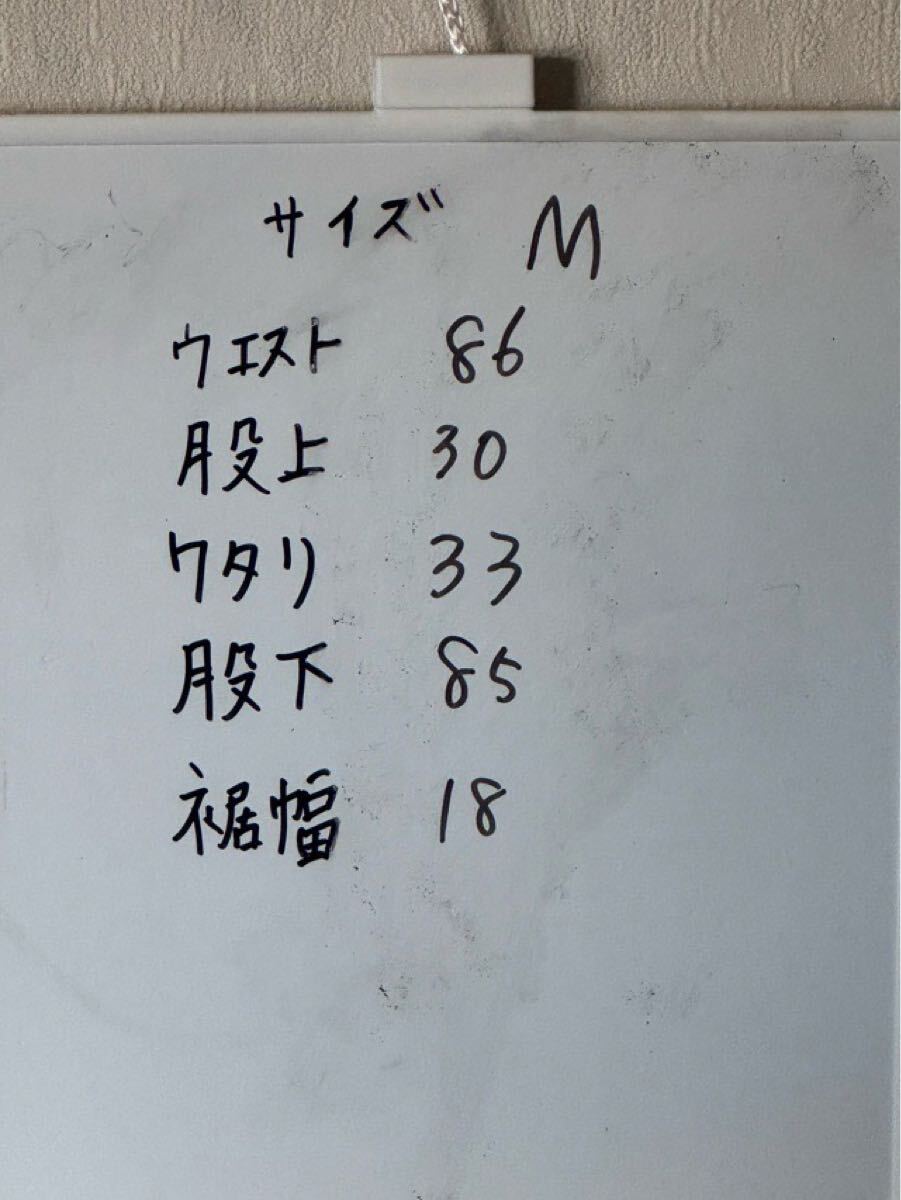 サイズ M
ウエスト 86
股上 30
ワタリ 33
股下 85
裾幅 18